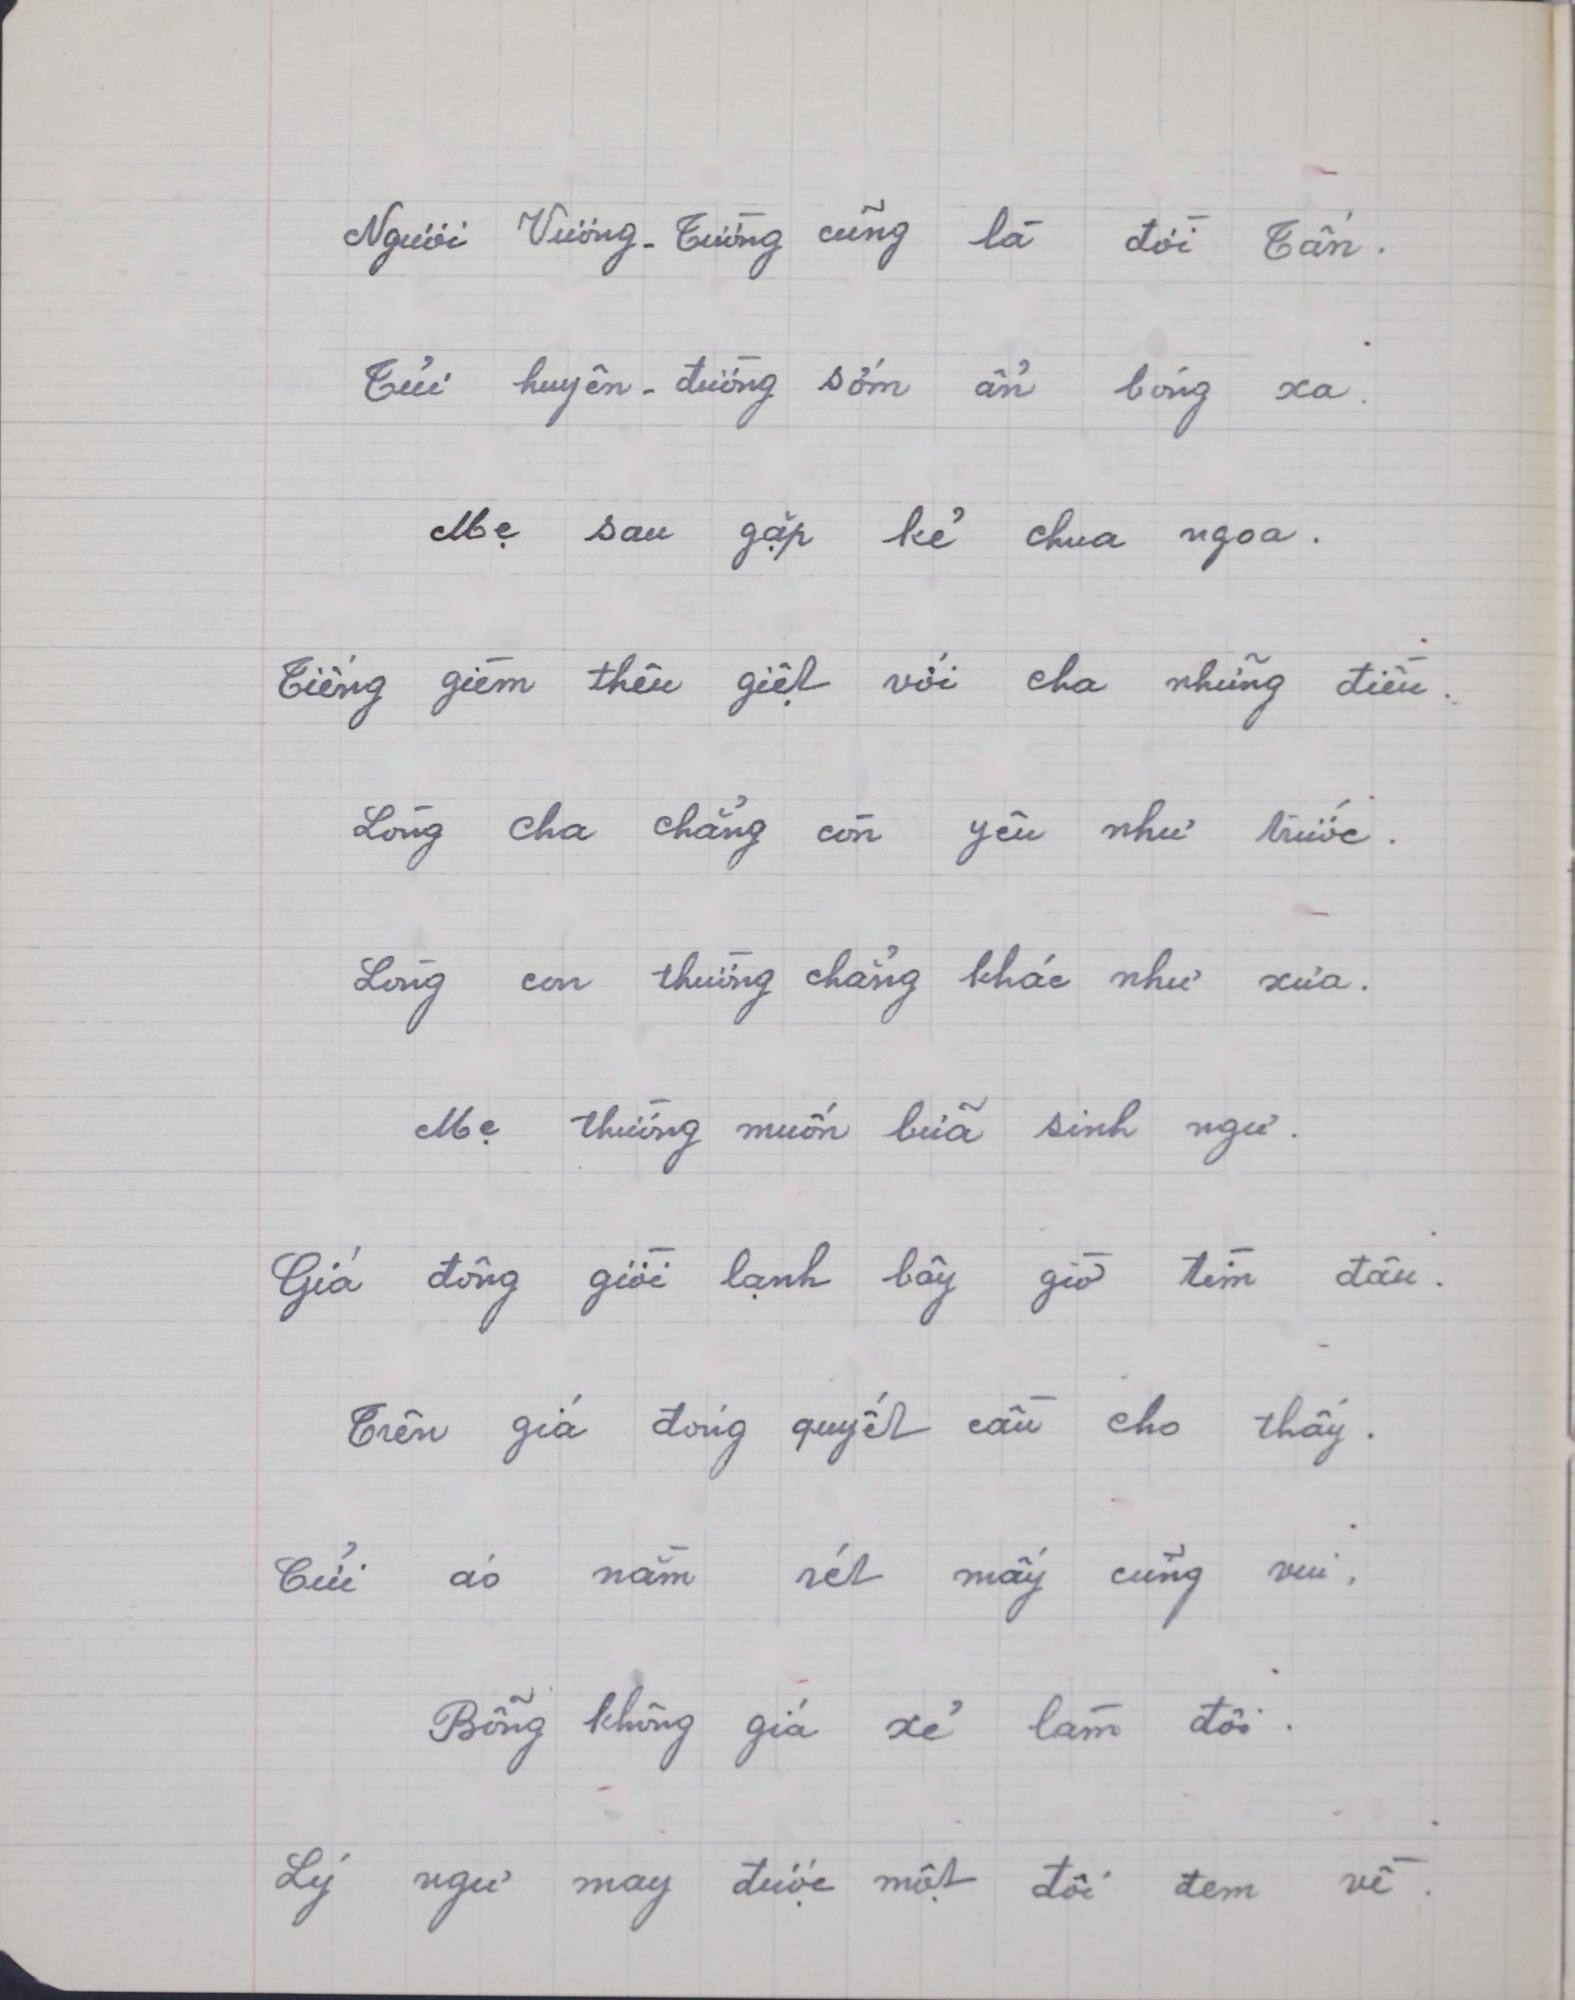 Người Vương-Tường cũng là đời Tấn.
Tủi huyên-đường sớm ẩn bóng xa.
Mẹ sau gặp kẻ chua ngoa.
Tiếng gièm thêu giệt với cha những điều.
Lòng cha chẳng còn yêu như trước.
Lòng con thường chẳng khác như xưa.
Mẹ thường muốn bữa sinh ngư.
Giá đông giời lạnh bây giờ tìm đâu.
Trên giá đóng quyết cầu cho thấy.
Cửi áo nằm rét mấy cũng vui.
Bỗng không giá xẻ làm đôi.
Lý ngư may được một đôi đem về.